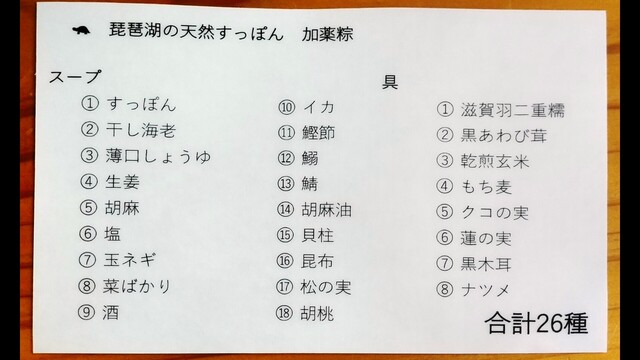 琵琶湖の天然すっぽん 加薬粽
スープ
① すっぽん
② 干し海老
③ 薄口しょうゆ
④ 生姜
⑤ 胡麻
⑥ 塩
⑦ 玉ネギ
⑧ 菜ばかり
⑨ 酒
⑩ イカ
⑪ 鰹節
⑫ 鰯
⑬ 鯖
⑭ 胡麻油
⑮ 貝柱
⑯ 昆布
⑰ 松の実
⑱ 胡桃
具
① 滋賀羽二重糯
② 黒あわび茸
③ 乾煎玄米
④ もち麦
⑤ クコの実
⑥ 蓮の実
⑦ 黒木耳
⑧ ナツメ
合計26種